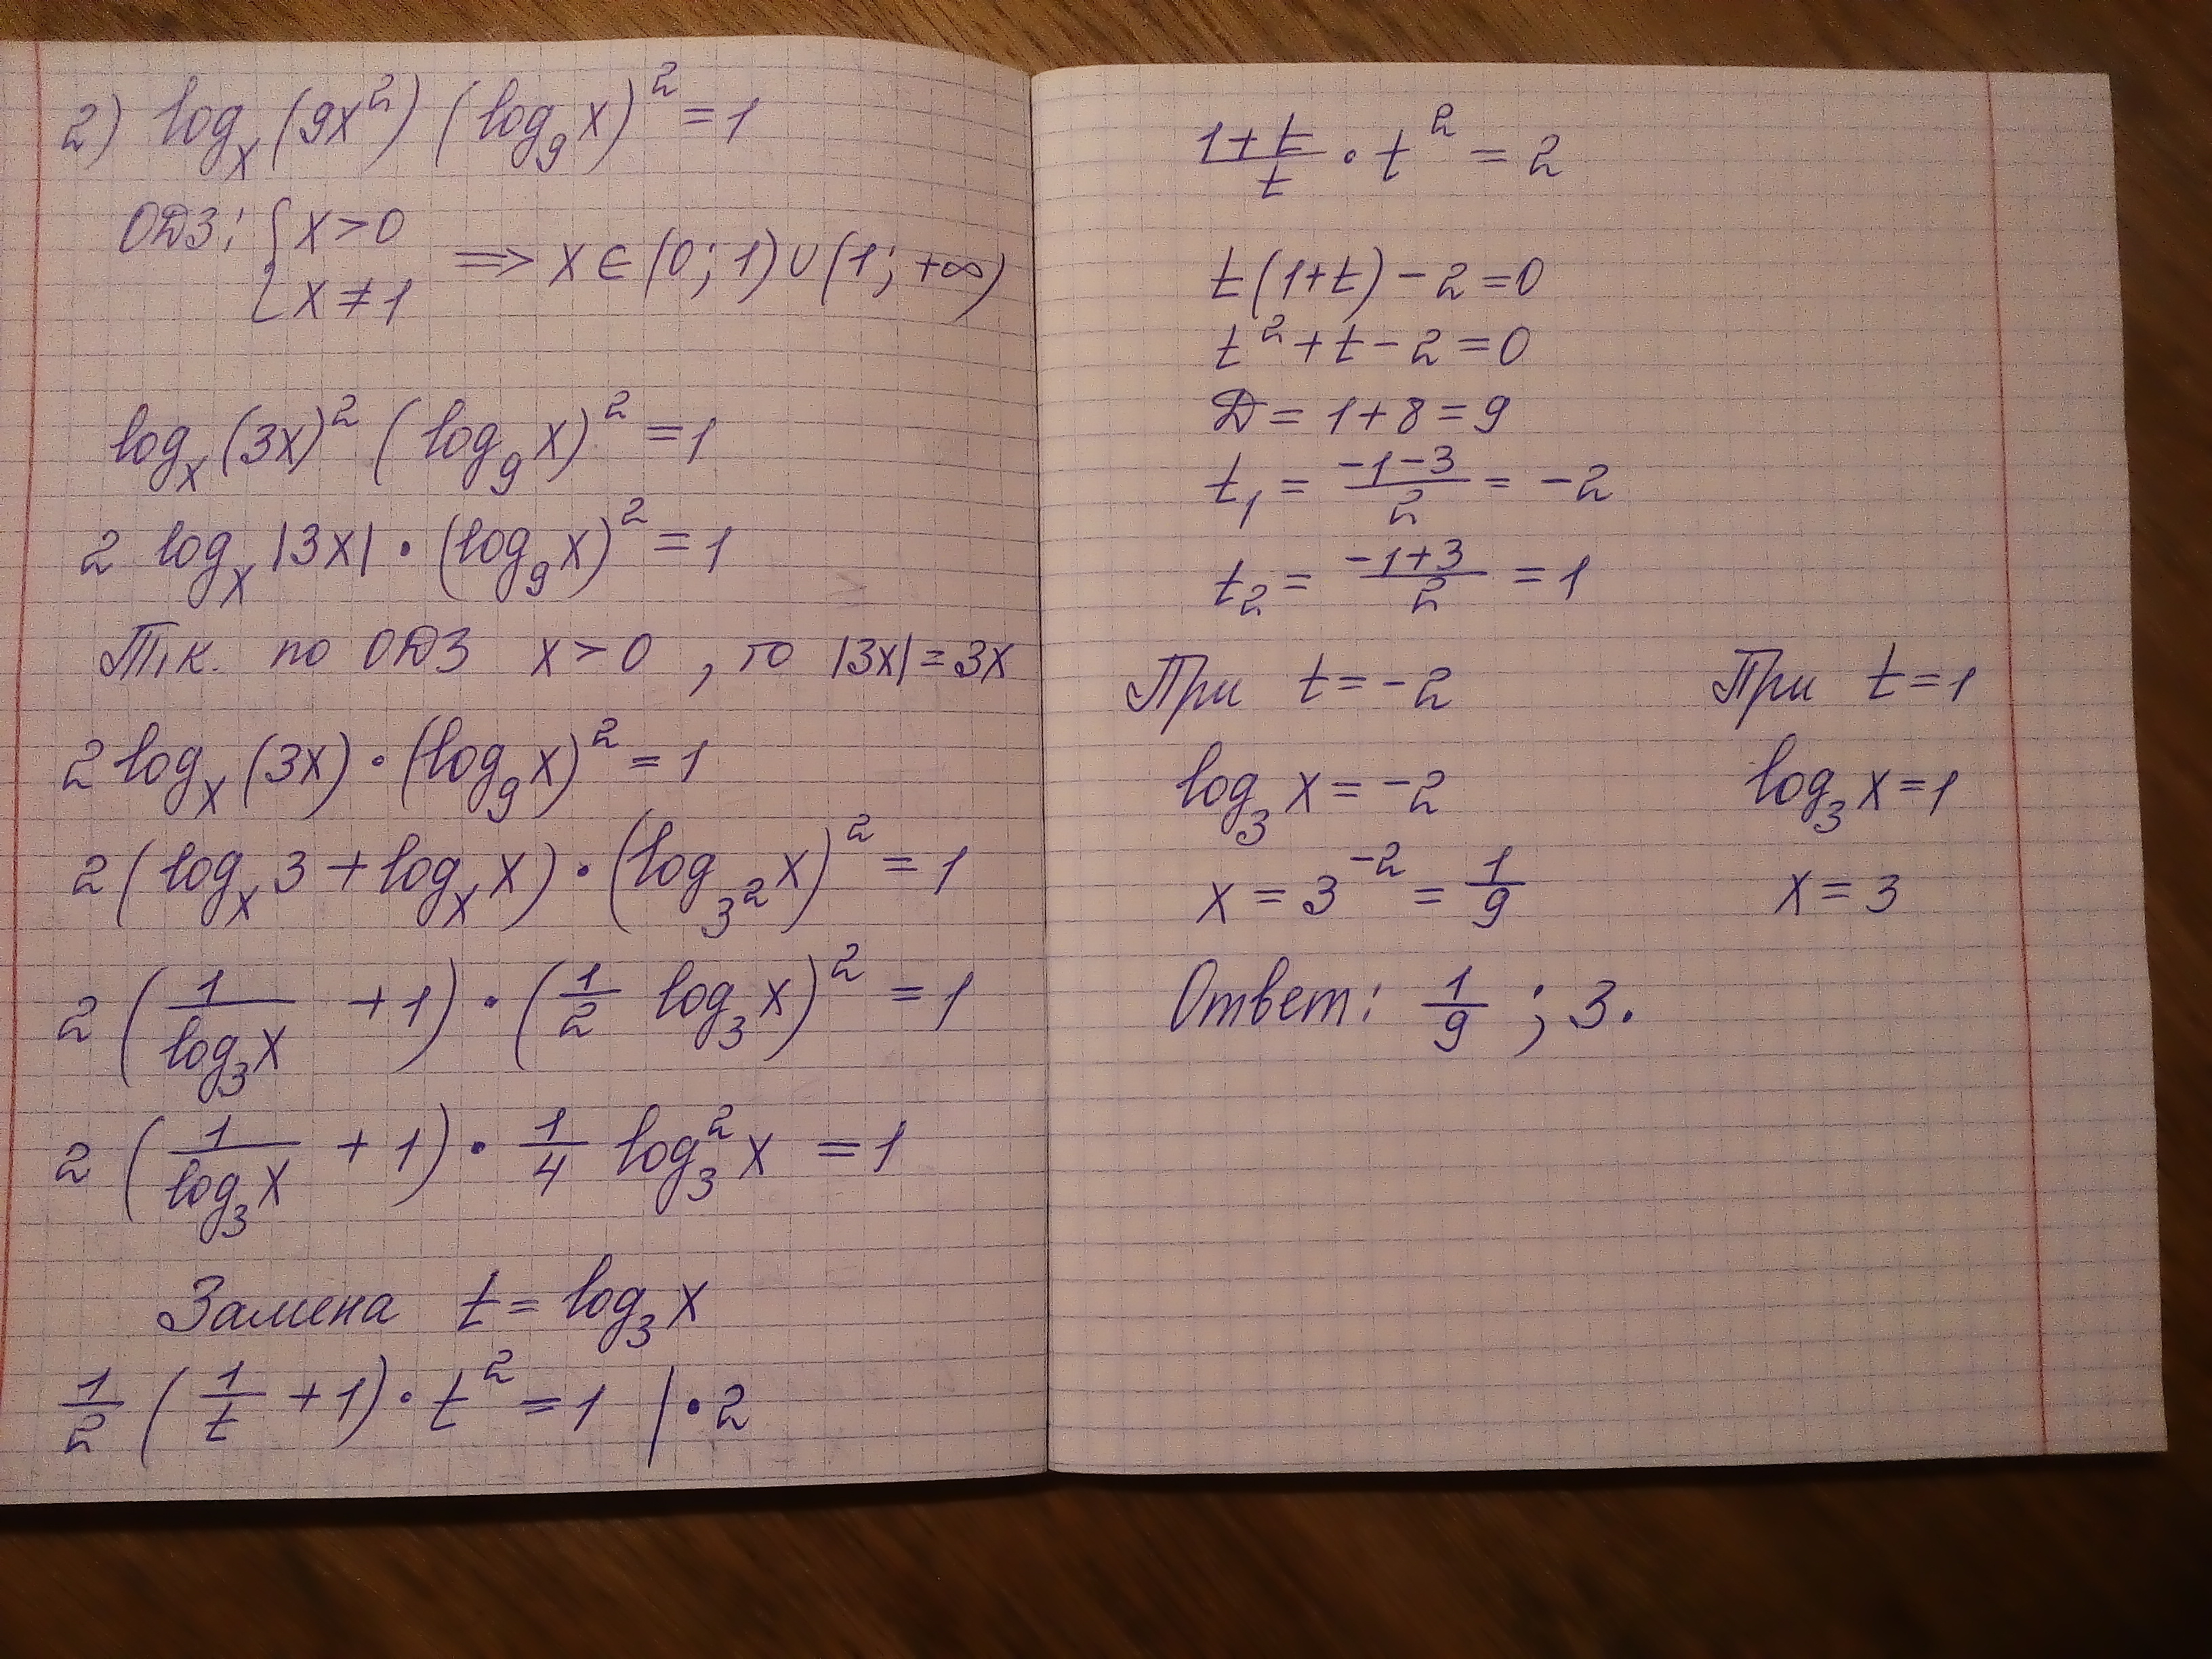 2) log_x (9x²) (log_9 x)² = 1
ОДЗ: { x > 0
{ x ≠ 1
=> x ∈ (0; 1) ∪ (1; +∞)
log_x (3x)² (log_9 x)² = 1
2 log_x |3x| · (log_9 x)² = 1
Т.к. по ОДЗ x > 0, то |3x| = 3x
2 log_x (3x) · (log_9 x)² = 1
2 (log_x 3 + log_x x) · (log_{3²} x)² = 1
2 (1/(log_3 x) + 1) · (1/2 log_3 x)² = 1
2 (1/(log_3 x) + 1) · 1/4 log_3² x = 1
Замена t = log_3 x
1/2 (1/t + 1) · t² = 1 | · 2
(1+t)/t · t² = 2
t(1+t) - 2 = 0
t² + t - 2 = 0
Д = 1 + 8 = 9
t₁ = (-1-3)/2 = -2
t₂ = (-1+3)/2 = 1
При t = -2
log_3 x = -2
x = 3⁻² = 1/9
При t = 1
log_3 x = 1
x = 3
Ответ: 1/9 ; 3.